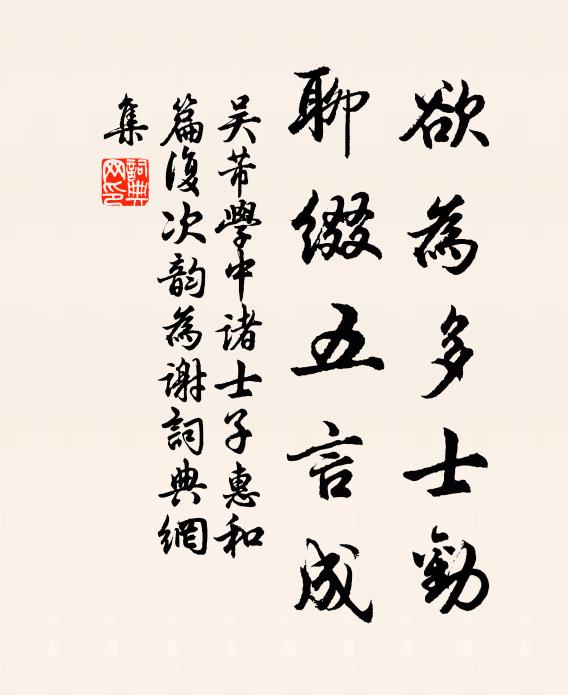 欲為多士勸
聊綴五言成
吴芾學中诸士子惠和
篇復次韵為谢詞典網
集
詞典網印